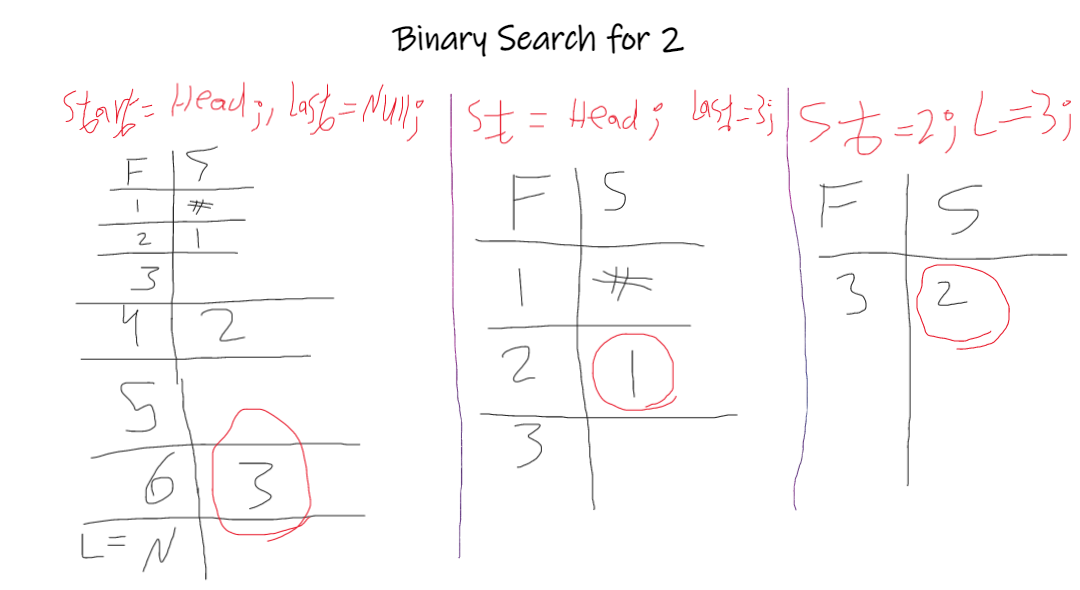 Binary Search for 2
Start = Head;, Last = Null;
F S
1 #
2 1
3
4 2
5
6 3
L = N
St = Head; Last=3;
F S
1 #
2 1
3
St =2; L=3;
F S
3 2